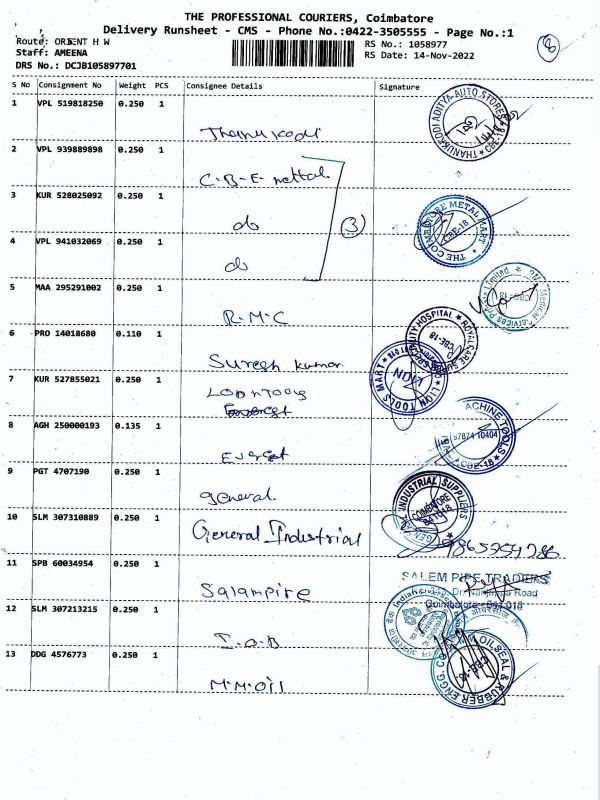 THE PROFESSIONAL COURIERS, Coimbatore
Delivery Runsheet - CMS - Phone No.:0422-3505555 - Page No.:1
Route: ORIENT H W
RS No.: 1058977
Staff: AMEENA
RS Date: 14-Nov-2022
DRS No.: DCJB105897701
S No Consignment No Weight PCS Consignee Details Signature
1 VPL 519818250 0.250 1
Thanukodi
THANUKKODI ADITYA AUTO STORES CBE-18
2 VPL 939889898 0.250 1
C.B.E. mettal
3 KUR 528025092 0.250 1
do
(3)
THE COIMBATORE METAL MART CBE-18
4 VPL 941032069 0.250 1
do
5 MAA 295291002 0.250 1
R.M.C
6 PRO 14018680 0.110 1
Suresh kumar
CBE-18
7 KUR 527855021 0.250 1
LION TOOLS MART
8 AGH 250000193 0.135 1
Everest
MACHINE TOOLS
97874 10404
CBE-18
9 PGT 4707190 0.250 1
general
INDUSTRIAL SUPPLIERS
COIMBATORE
641018
10 SLM 307310889 0.250 1
General Industrial
11 SPB 60034954 0.250 1
Salampire
SALEM PIPE TRADERS
Dr. Nanjappa Road
Coimbatore - 641 018
12 SLM 307213215 0.250 1
I.O.B
13 DDG 4576773 0.250 1
M.M.Oil
OILSEAL & RUBBER ENGG. CO
CBE-18